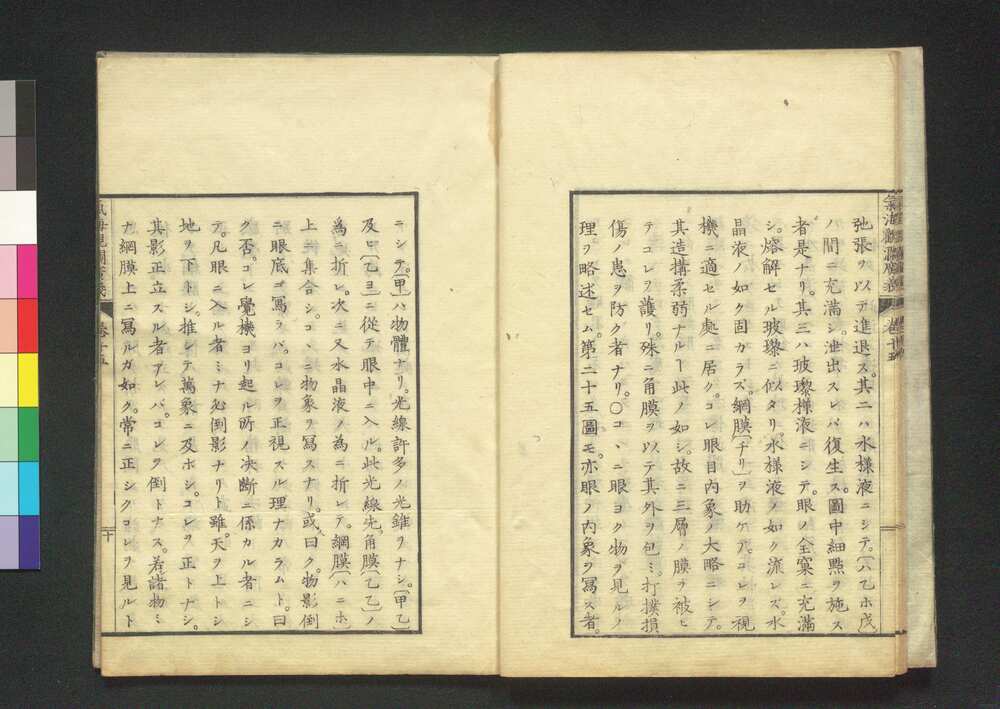 弛張ヲ以テ進退ス。其二ハ水様液ニシテ。〔ハ乙ホ戊〕
ノ間ニ充満シ。泄出スレバ復生ス。圖中細點ヲ施ス
者是ナリ。其三ハ玻瓈様液ニシテ。眼ノ全窠ニ充満
シ。熔解セル玻瓈ニ似タリ水様液ノ如ク流レズ。水
晶液ノ如ク固カラズ。網膜〔チリ〕ヲ助ケテ。コレヲ視
機ニ適セル處ニ居ク。コレ眼目内象ノ大略ニシテ。
其造搆柔弱ナルヿ此ノ如シ。故ニ三層ノ膜ヲ被ヒ
テコレヲ護リ。殊ニ角膜ヲ以テ其外ヲ包ミ。打撲損
傷ノ患ヲ防ク者ナリ。〇コヽニ眼ヨク物ヲ見ルノ
理ヲ略述セム。第二十五圖モ。亦眼ノ内象ヲ寫ス者
ニシテ。〔甲〕ハ物體ナリ。光線許多ノ光錐ヲナシ。〔甲乙〕
及ロ〔乙ヨ〕ニ從テ眼中ニ入ル。此光線先角膜〔乙乙〕ノ
為ニ折レ。次ニ又水晶液ノ為ニ折レテ。網膜〔ハニホ〕
上ニ集合シ。コヽニ物象ヲ寫スナリ。或曰ク。物影倒
ニ眼底ニ寫ラバ。コレヲ正視スル理ナカラムト。曰
ク否。コレ覺機ヨリ起ル所ノ決斷ニ係カル者ニシ
テ。凡眼ニ入ル者ミナ必倒影ナリト雖。天ヲ上トシ
地ヲ下トシ。推シテ萬象ニ及ボシ。コレヲ正トナシ。
其影正立スル者アレバ。コレヲ倒トナス。若諸物ミ
ナ網膜上ニ寫ルガ如ク。常ニ正シクコレヲ見ルト
氣海觀瀾廣義
卷十五
十